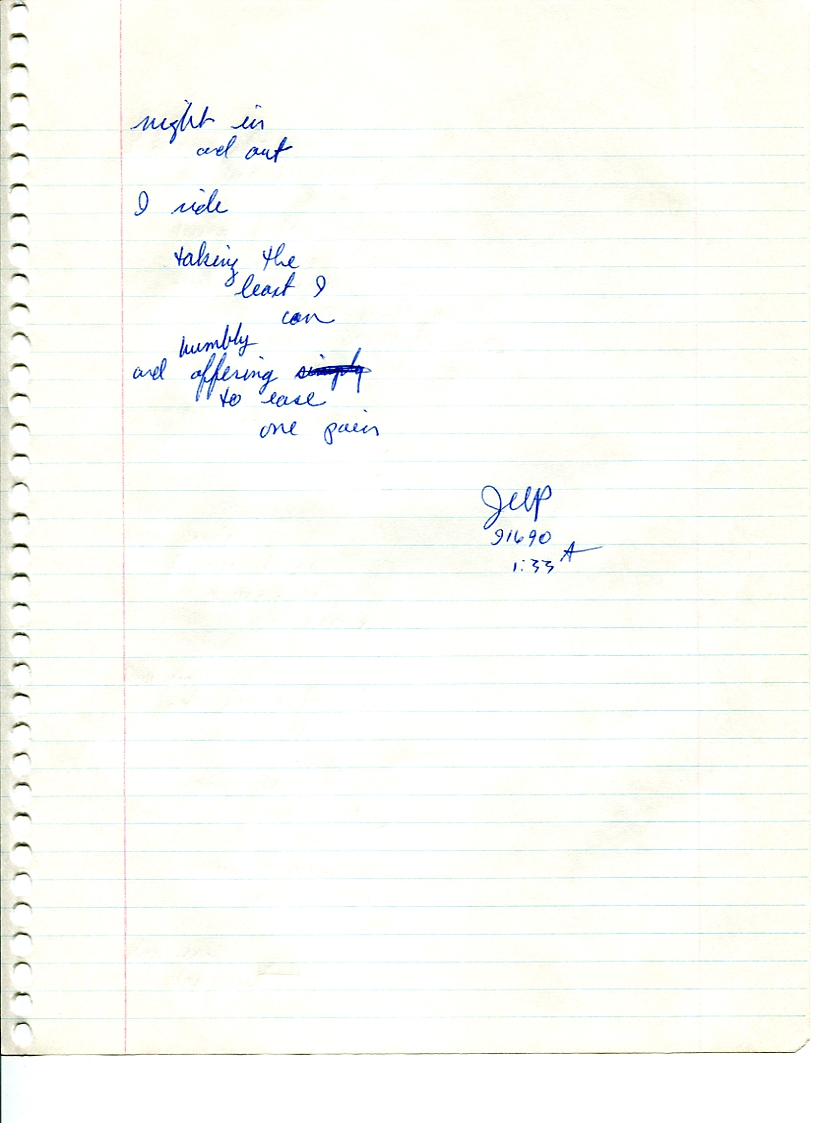 night in
and out
I ride
taking the
least I
can
humbly
and offering simply
to ease
one pain
JWP
91690
1:33 A